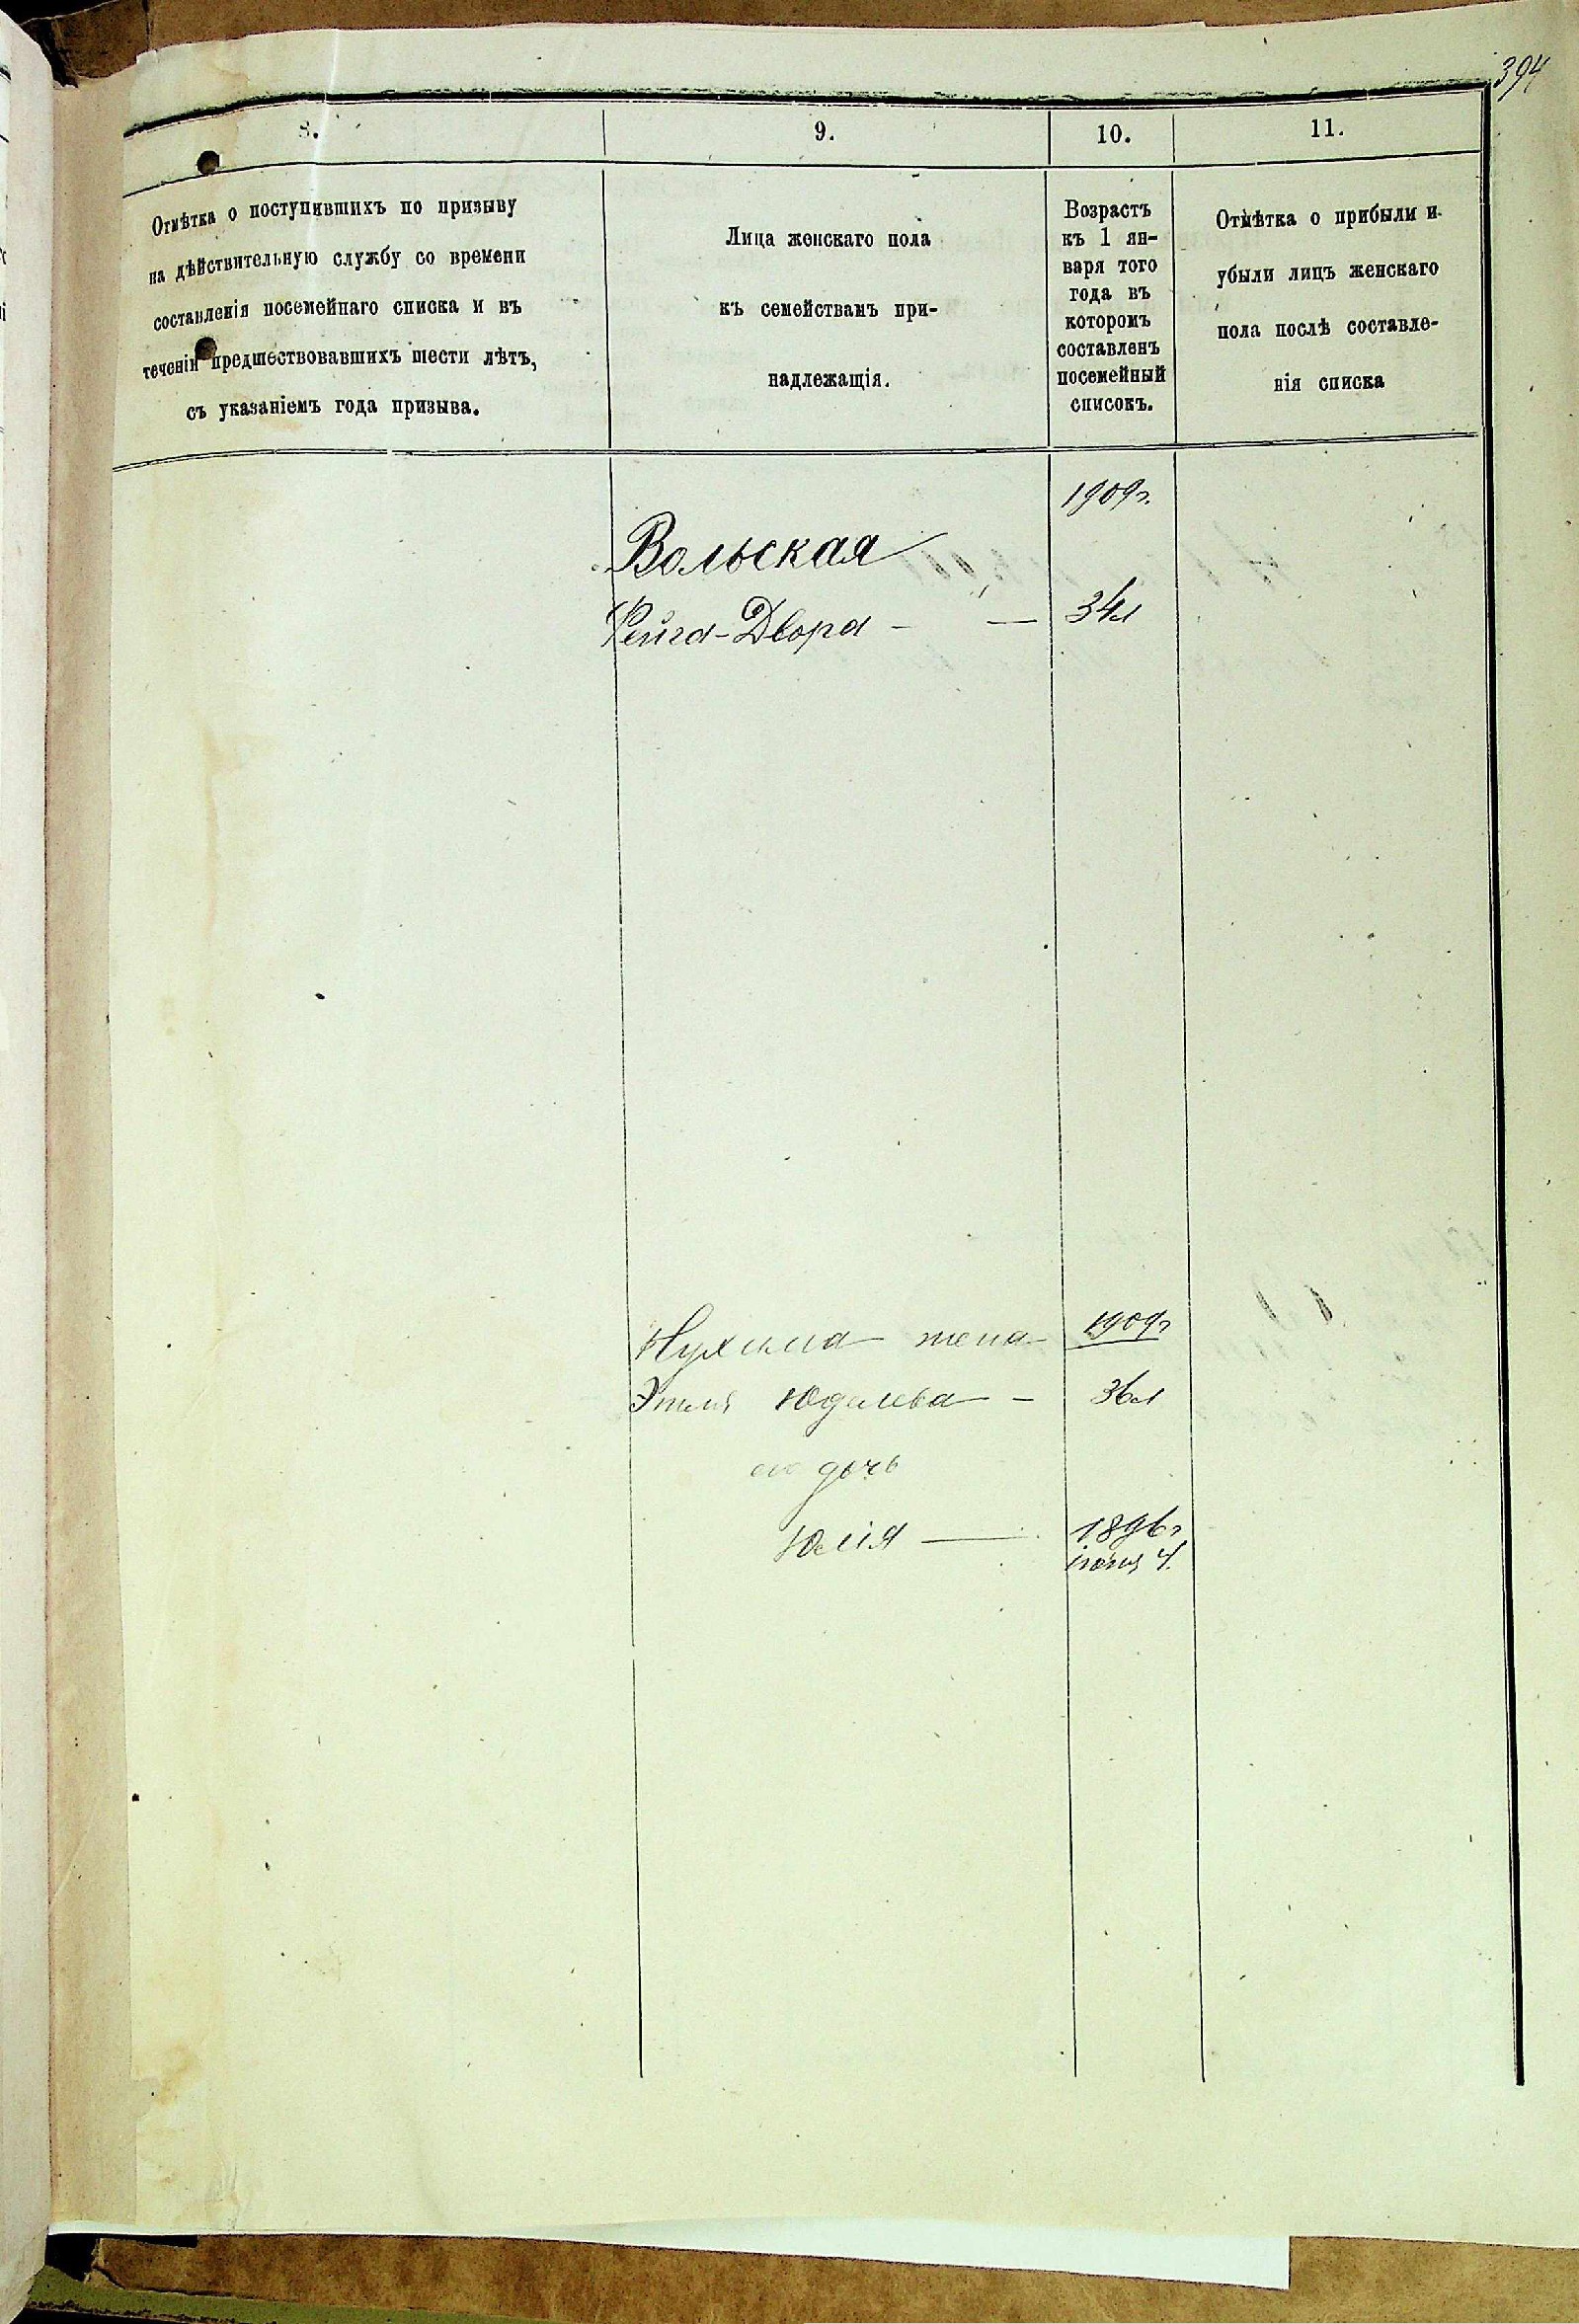 394
8.
9.
10.
11.
Отмѣтка о поступившихъ по призыву
на дѣйствительную службу со времени
составленія посемейнаго списка и въ
теченіи предшествовавшихъ шести лѣтъ,
съ указаніемъ года призыва.
Лица женскаго пола
къ семействамъ при-
надлежащія.
Возрастъ
къ 1 ян-
варя того
года въ
которомъ
составленъ
посемейный
списокъ.
Отмѣтка о прибыли и
убыли лицъ женскаго
пола послѣ составле-
нія списка
1909г.
Вольская
Фейга-Двора - — 34л
Нухима жена 1909г
Этля Юделева - 36л
его дочь
Юлія — 1896г
іюня 4.